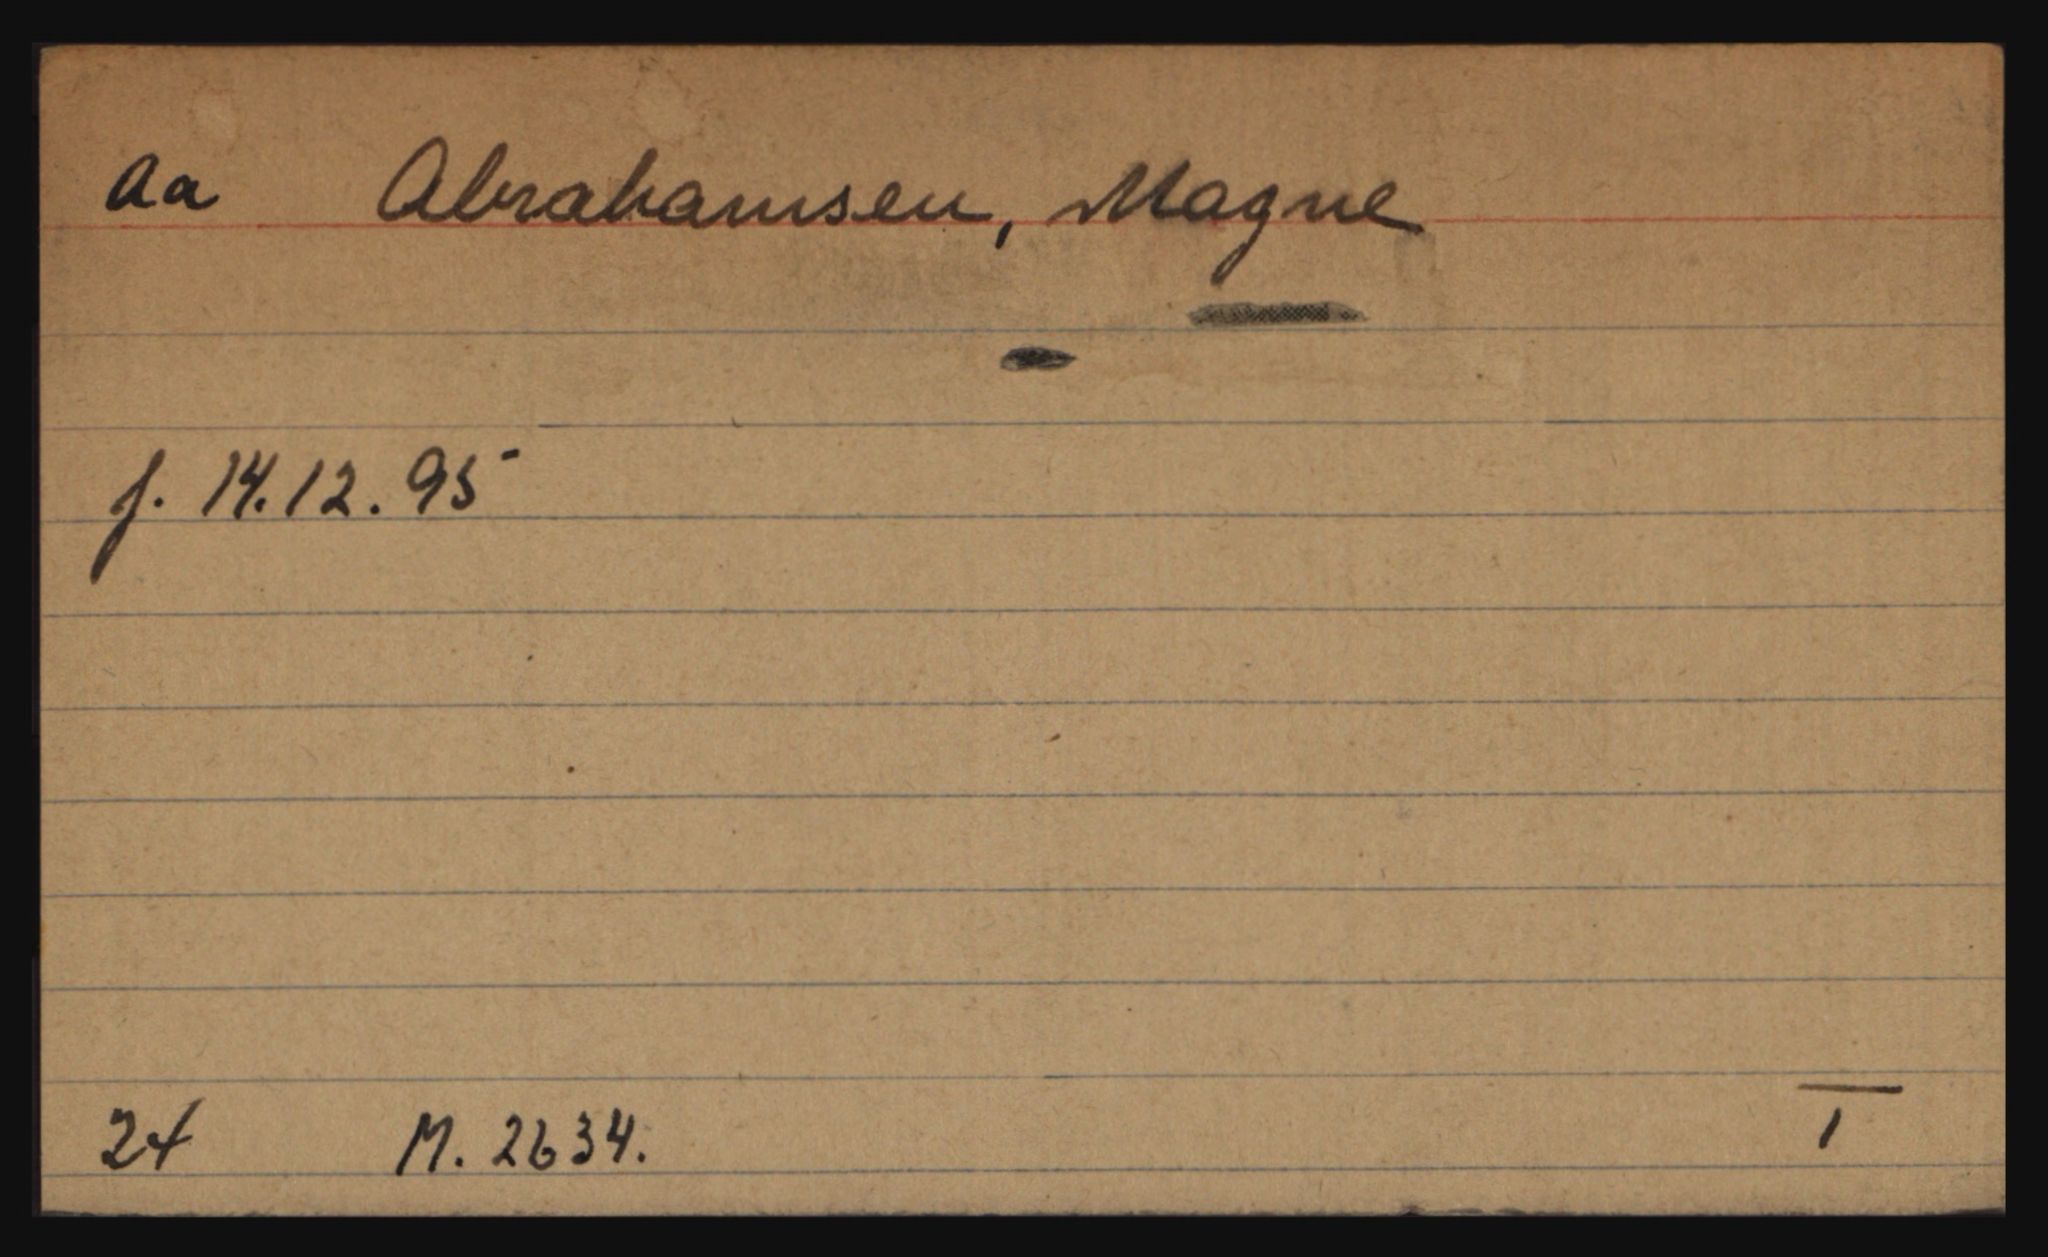 Aa Abrahamsen, Magne
f. 14.12.95
24 M. 2634.
1